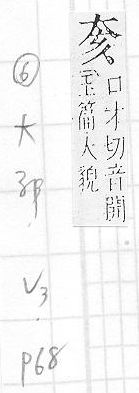 奒
口才切音開
玉篇大貌
⑥大部. V3. P68